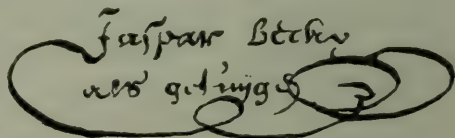 Jaspar Becky
als getuijge